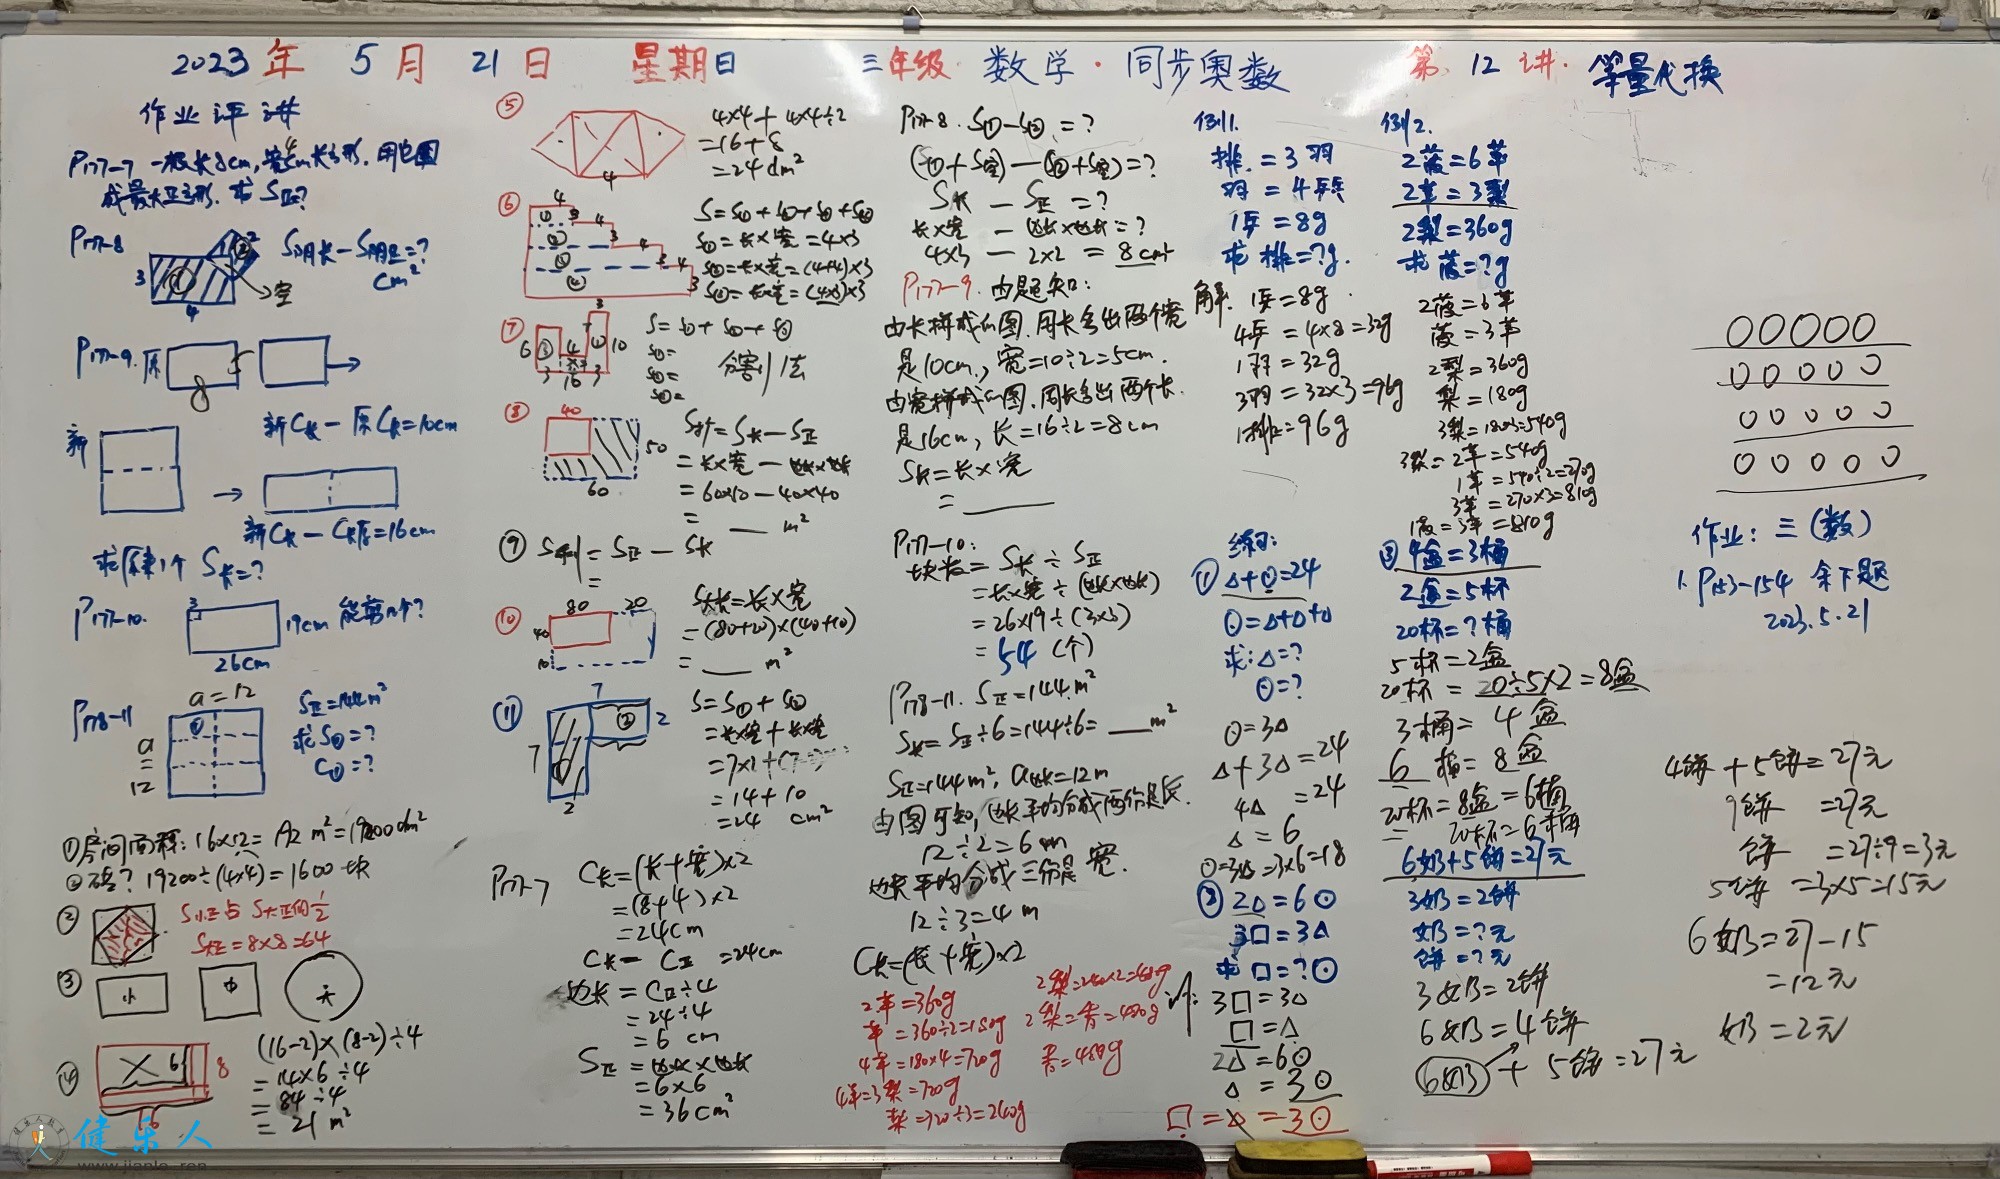 2023年 5月 21日 星期日 三年级·数学·同步奥数 第12讲·等量代换
作业评讲
P177-7 一根长8cm,宽4cm长方形.用它围
成最大正方形.求S正?
P177-8
3
4
2
①
②
空
S阴长-S阴正=?
cm²
P177-9.原
8
5
新
新C长-原C长=10cm
新C长-C长原=16cm
求原来1个S长=?
P177-10.
3
19cm 能剪几个?
26cm
P178-11
a=12
a
=
12
①
S正=144m²
求S①=?
C①=?
①房间面积:16×12=192m²=19200dm²
②砖?19200÷(4×4)=1600块
②
S小正占S大正的1/2
S大正=8×8=64
③
小
中
大
④
6
8
16
(16-2)×(8-2)÷4
=14×6÷4
=84÷4
=21m²
⑤
4
4×4+4×4÷2
=16+8
=24dm²
⑥
4
3
4
3
4
3
4
3
①
②
③
④
S=S①+S②+S③+S④
S①=长×宽=4×3
S②=长×宽=(4+4)×3
S③=长×宽=(4×3)×3
⑦
6
3
4
3
10
16
3
S=S①+S②+S③
S①=
S②=
S③=
分割法
⑧
40
50
60
S扩=S长-S正
=长×宽-边长×边长
=60×50-40×40
=___m²
⑨ S剩=S正-S长
=
⑩
80
20
40
10
S大长=长×宽
=(80+20)×(40+10)
=___m²
⑪
7
7
2
2
①
②
S=S①+S②
=长×宽+长×宽
=14+10
=24 cm²
P177-7
C长=(长+宽)×2
=(8+4)×2
=24cm
C长=C正=24cm
边长=C正÷4
=24÷4
=6cm
S正=边长×边长
=6×6
=36cm²
P177-8.S①-S②=?
(S①+S空)-(S②+S空)=?
S长-S正=?
长×宽-边长×边长=?
4×3-2×2=8cm²
P177-9.由题知:
由长拼成的图.周长多出两个宽
是10cm,宽=10÷2=5cm.
由宽拼成的图.周长多出两个长.
是16cm,长=16÷2=8cm
S长=长×宽
=___
P177-10:
块数=S长÷S正
=长×宽÷(边长×边长)
=26×19÷(3×3)
=54(个)
P178-11.S正=144m²
S长=S正÷6=144÷6=___m²
S正=144m²,a边长=12m
由图可知,边长平均分成两份是长.
12÷2=6m
边长平均分成三份是宽.
12÷3=4m
C长=(长+宽)×2
2苹=360g
苹=360÷2=180g
4苹=180×4=720g
4苹=3梨=720g
梨=720÷3=240g
2梨=240×2=480g
2梨=香=480g
香=480g
例1.
排.=3羽
羽=4乒
1乒=8g
求排=?g.
解.1乒=8g.
4乒=4×8=32g
1羽=32g
3羽=32×3=96g
1排=96g
练习:
①△+⊙=24
⊙=△+△+△
求:△=?
⊙=?
⊙=3△
△+3△=24
4△=24
△=6
⊙=3△=3×6=18
②2△=6⊙
3□=3△
求□=?⊙
3□=3△
□=△
2△=6⊙
△=3⊙
□=△=3⊙
例2.
2菠=6苹
2苹=3梨
2梨=360g
求菠=?g
2菠=6苹
菠=3苹
2梨=360g
梨=180g
3梨=180×3=540g
3梨=2苹=540g
1苹=540÷2=270g
3苹=270×3=810g
1菠=3苹=810g
③4盒=3桶
2盒=5杯
20杯=?桶
5杯=2盒
20杯=20÷5×2=8盒
3桶=4盒
6桶=8盒
20杯=8盒=6桶
= 20杯=6桶
6奶+5饼=27元
3奶=2饼
奶=?元
饼=?元
3奶=2饼
6奶=4饼
6奶+5饼=27元
OOOOO
OOOOO
OOOOO
OOOOO
作业:三(数)
1.P153-154 余下题
2023.5.21
4饼+5饼=27元
9饼=27元
饼=27÷9=3元
5饼=3×5=15元
6奶=27-15
=12元
奶=2元
健乐人
www.jianle.ren